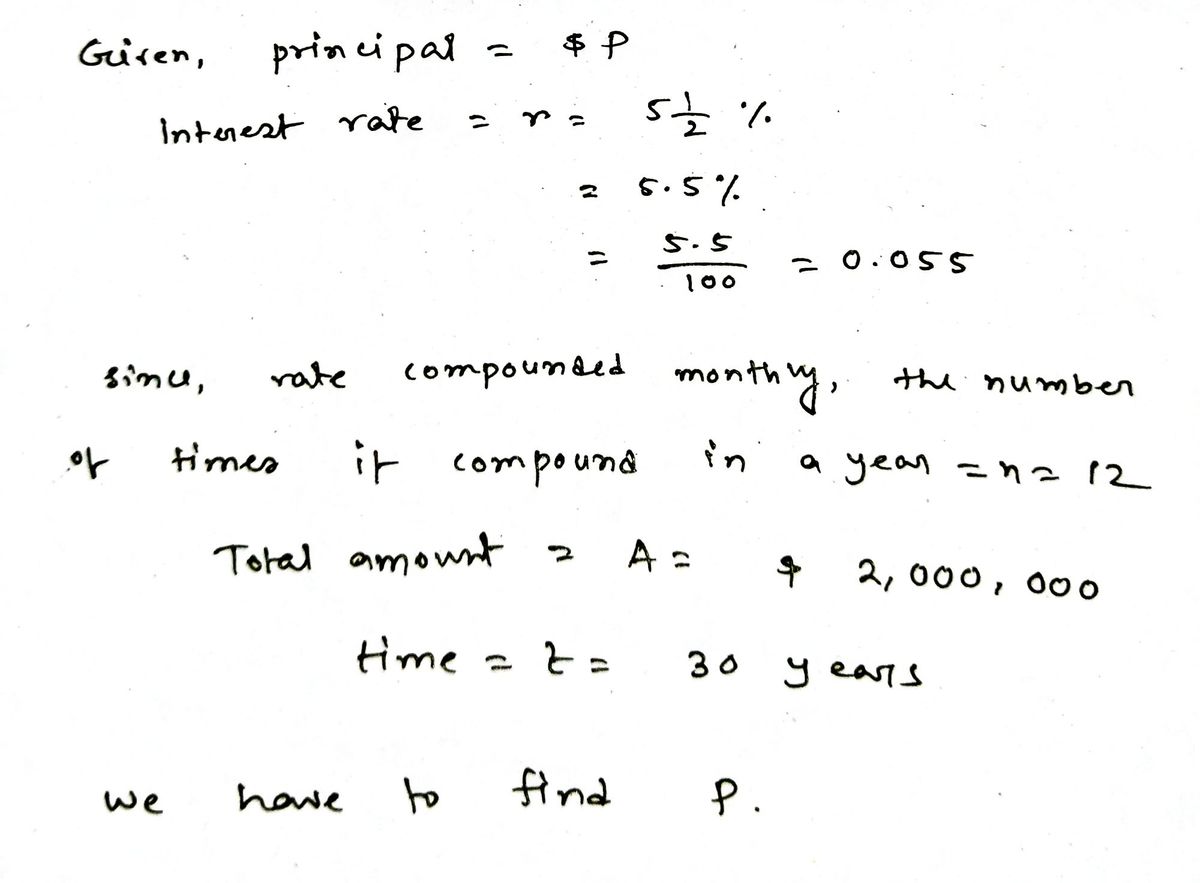 Given, principal = $ P
Interest rate = r = 5 1/2 %
= 5.5 %
= 5.5/100 = 0.055
since, rate compounded monthly, the number
of times it compound in a year = n = 12
Total amount = A = $ 2,000,000
time = t = 30 years
we have to find P.